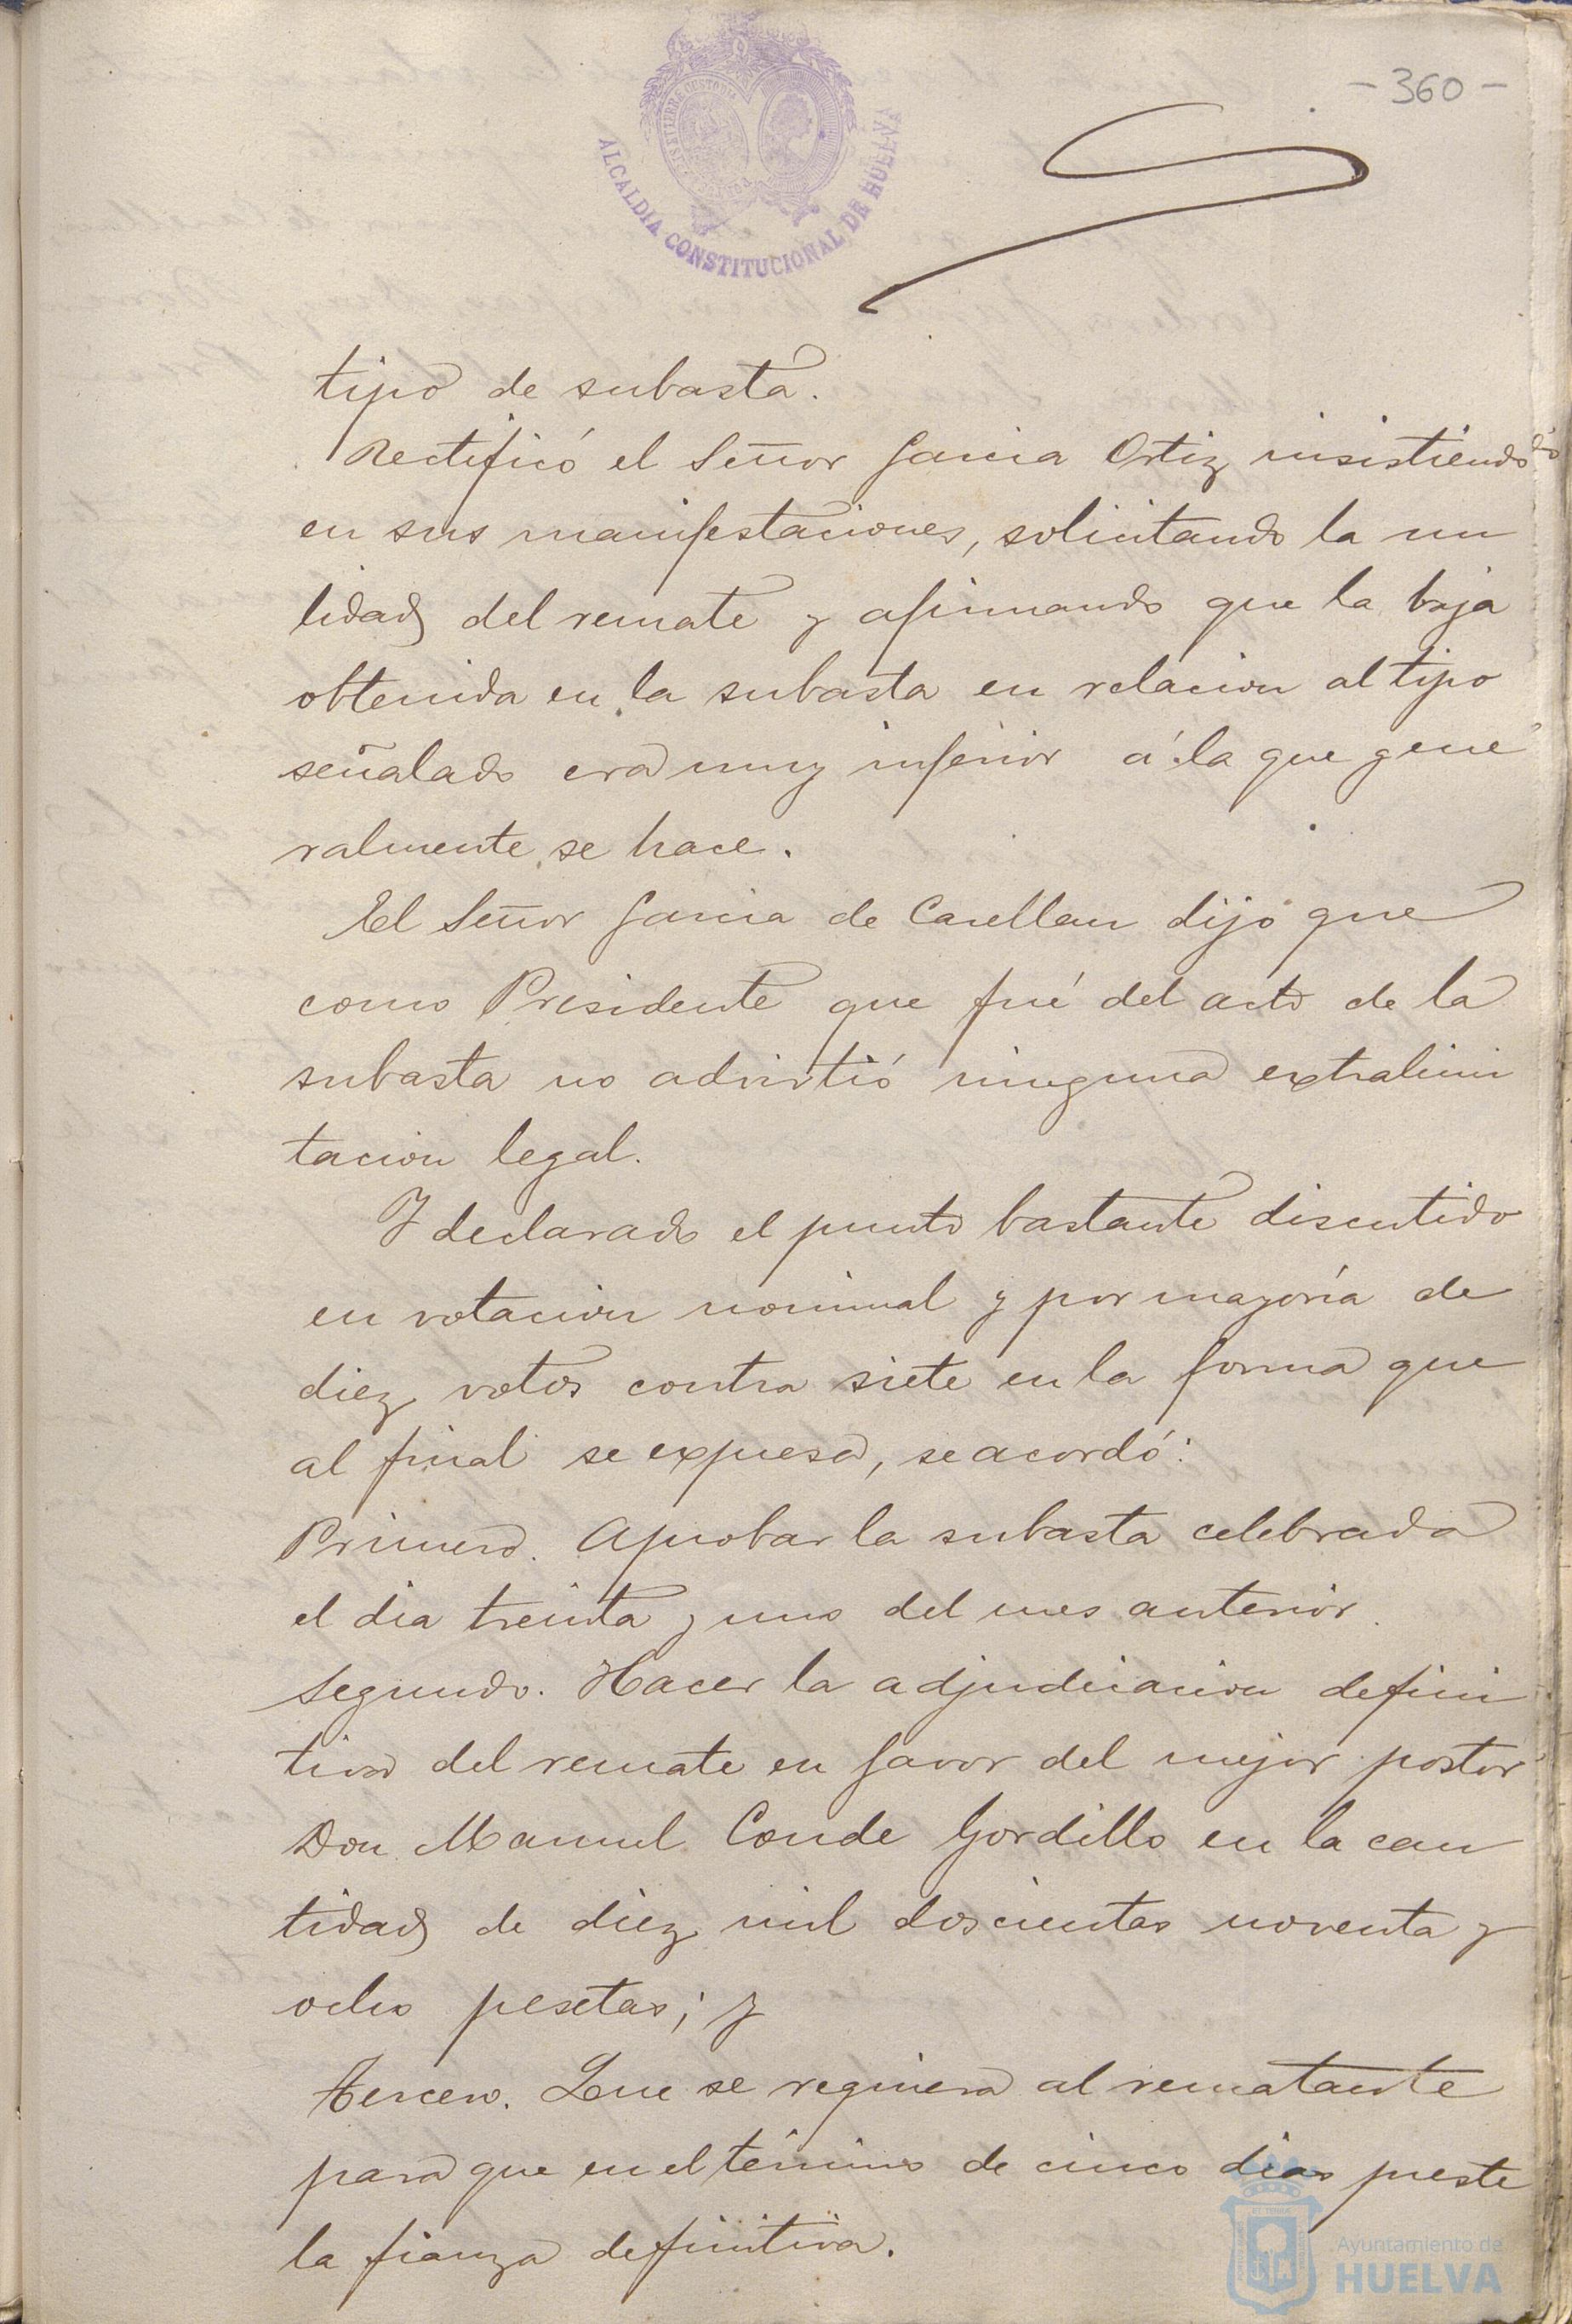 - 360 -
ALCALDIA CONSTITUCIONAL DE HUELVA
tipo de subasta.
Rectificó el Señor Garcia Ortiz insistiendo
en sus manifestaciones, solicitando la nu
lidad del remate y afirmando que la baja
obtenida en la subasta en relacion al tipo
señalado era muy inferior á la que gene
ralmente se hace.
El Señor Garcia de Casellan dijo que
como Presidente que fué del acto de la
subasta no advirtió ninguna extralimi
tacion legal.
Y declarado el punto bastante discutido
en votacion nominal y por mayoría de
diez votos contra siete en la forma que
al final se expresa, se acordó:
Primero. Aprobar la subasta celebrada
el dia treinta y uno del mes anterior.
Segundo. Hacer la adjudicacion defini
tiva del remate en favor del mejor postor
Don Manuel Conde Gordillo en la can
tidad de diez mil doscientas noventa y
ocho pesetas; y
Tercero. Que se requiera al rematante
para que en el término de cinco dias preste
la fianza definitiva.
Ayuntamiento de
HUELVA